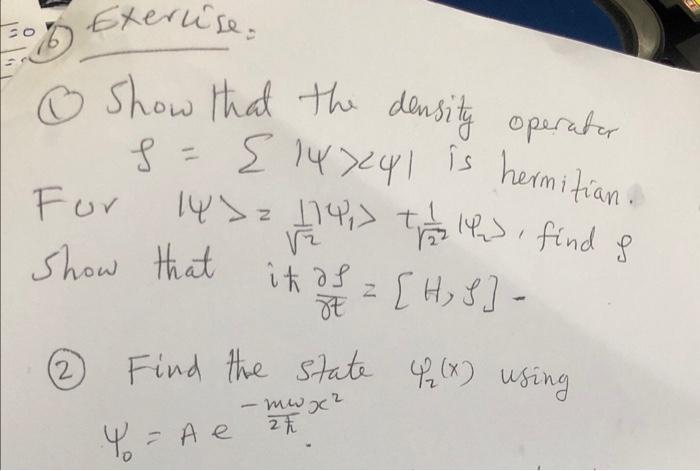 =0
(16) Exercise:
① Show that the density operator
ρ = Σ |ψ><ψ| is hermitian.
For |ψ> = 1/√2 |φ₁> + 1/√2 |φ₂>, find ρ
Show that iħ ∂ρ/∂t = [H, ρ] -
② Find the state φ₂(x) using
ψ₀ = A e^(-mωx²/2ħ).